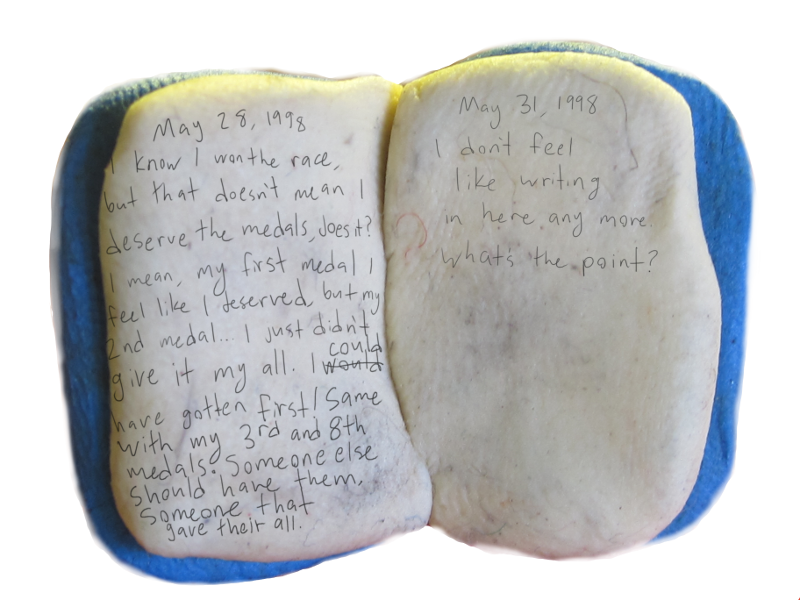 May 28, 1998
I know I won the race,
but that doesn't mean I
deserve the medals, does it?
I mean, my first medal I
feel like I deserved, but my
2nd medal... I just didn't
give it my all. I would could
have gotten first! Same
with my 3rd and 8th
medals. Someone else
should have them.
Someone that
gave their all.
May 31, 1998
I don't feel
like writing
in here any more.
whats the point?